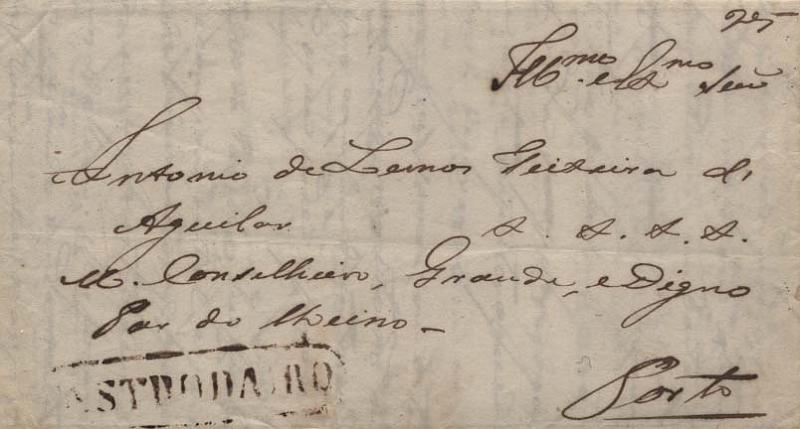 25
Illmo. e Exmo Senr
Antonio de Lemos Teixeira d'
Aguilar &. &. &. &.
M. Conselheiro, Grande, e Digno
Par do Reino_
ASTRODAIRO
Porto